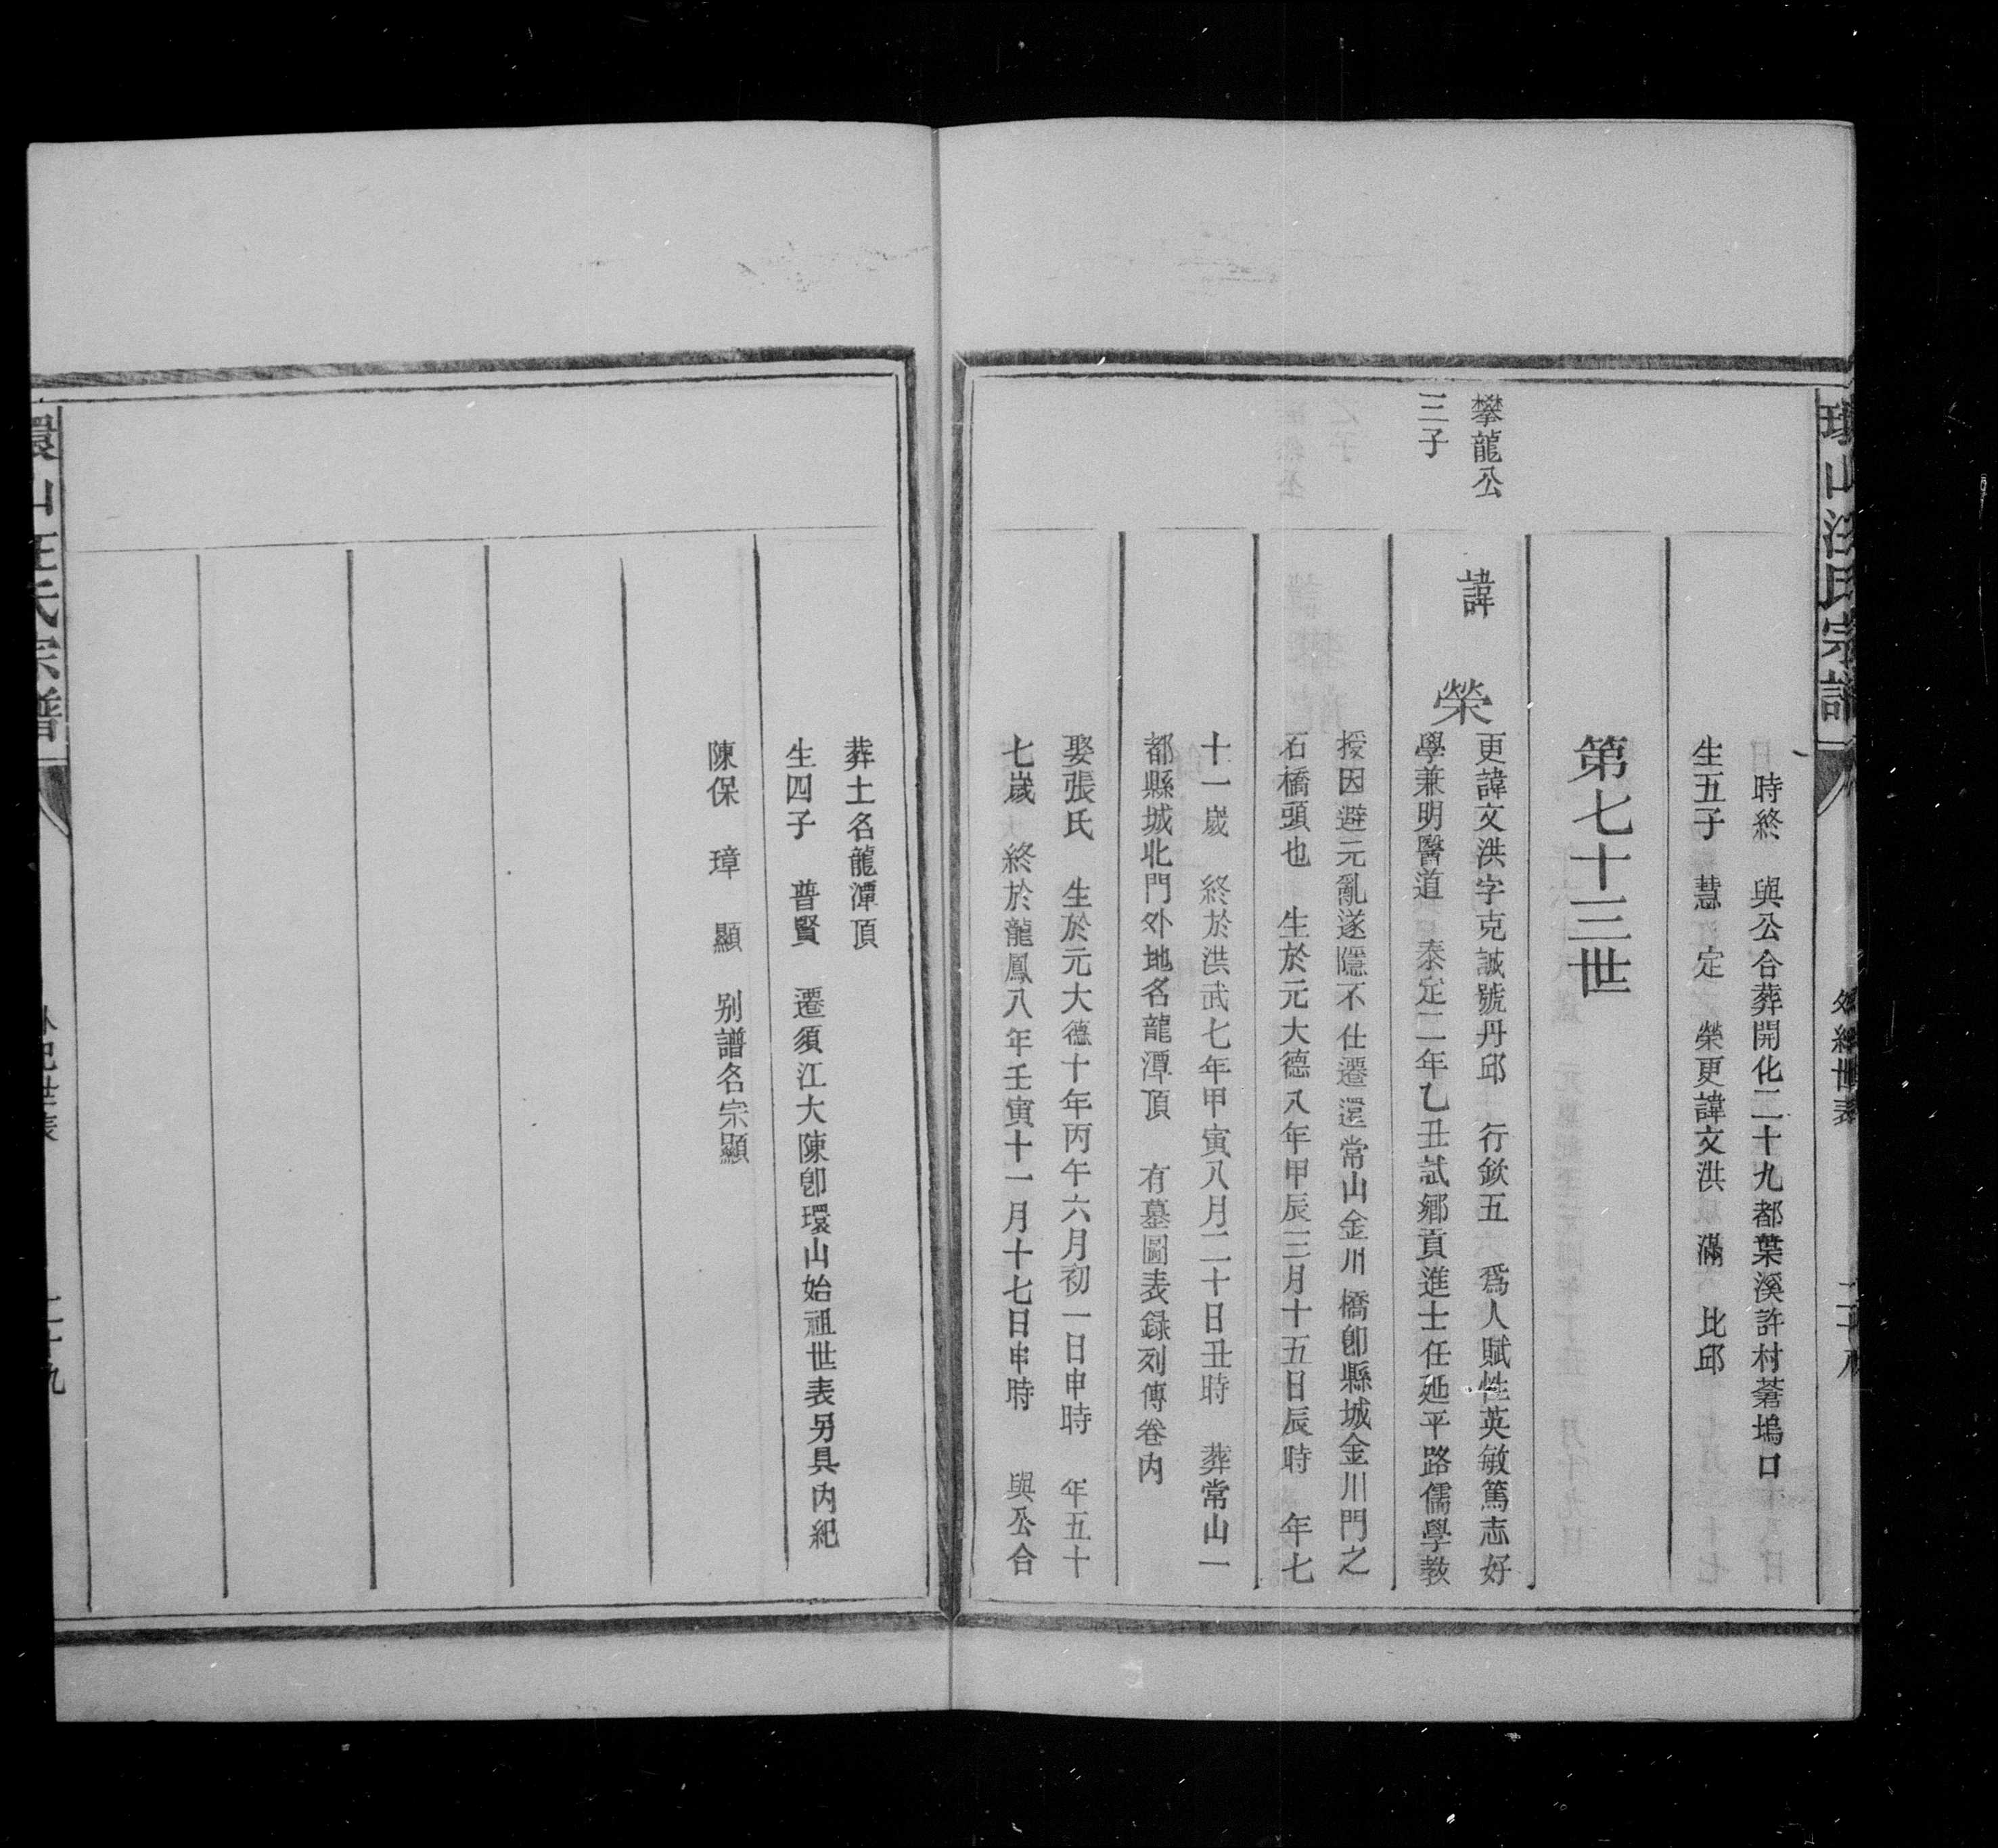 環山汪氏宗譜
外紀世表
二十八
時終　與公合葬開化二十九都葉溪許村菴塢口
生五子　慧　定　榮更諱文洪　滿　比邱
第七十三世
攀龍公
三子
諱
榮
更諱文洪字克誠號丹邱　行欽五　爲人賦性英敏篤志好
學兼明醫道　泰定二年乙丑試鄉貢進士任延平路儒學教
授因避元亂遂隱不仕遷還常山金川橋卽縣城金川門之
石橋頭也　生於元大德八年甲辰三月十五日辰時　年七
十一歲　終於洪武七年甲寅八月二十日丑時　葬常山一
都縣城北門外地名龍潭頂　有墓圖表錄列傳卷內
娶張氏　生於元大德十年丙午六月初一日申時　年五十
七歲　終於龍鳳八年壬寅十一月十七日申時　與公合
葬土名龍潭頂
生四子　普賢　遷須江大陳卽環山始祖世表另具內紀
陳保　璋　顯　別譜名宗顯
環山汪氏宗譜
外紀世表
二十九